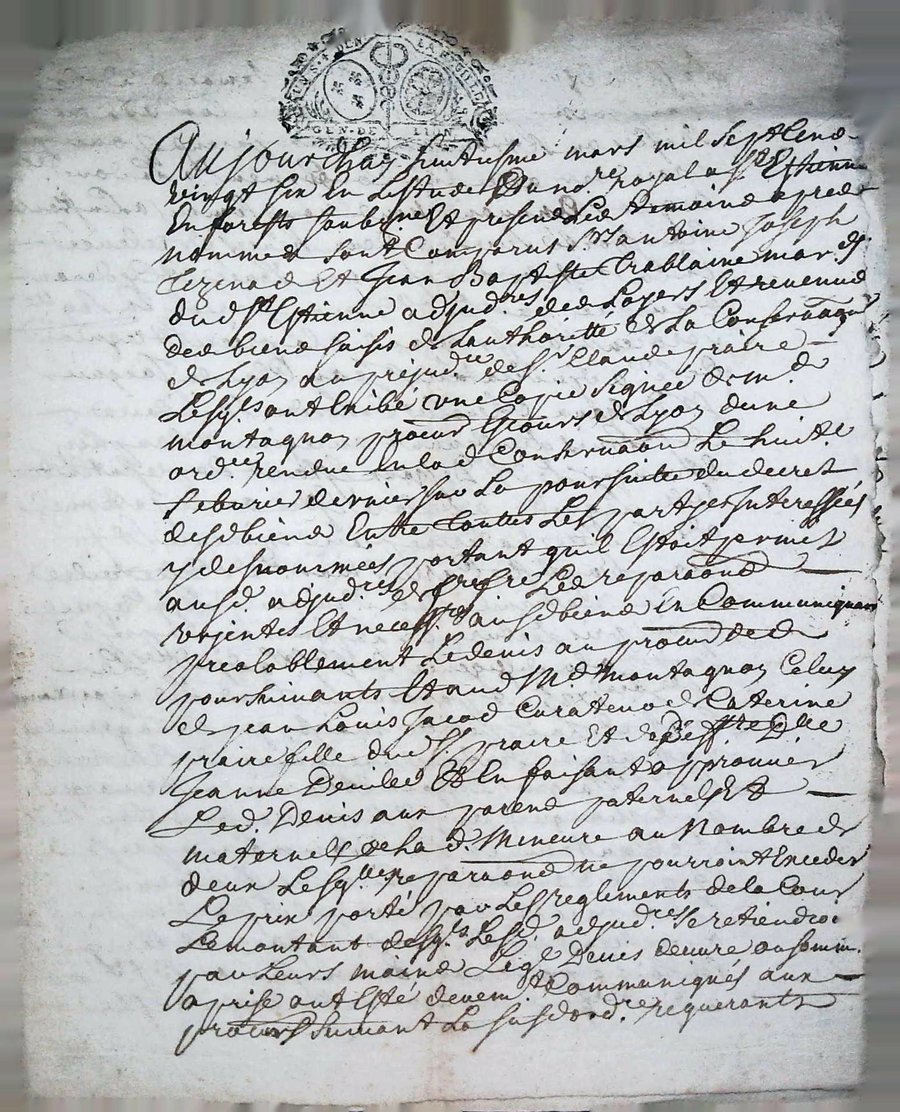 GEN. DE LION
Aujourdhuy huitiesme mars mil sept cens
vingt six En Lestude Du no.re royal a St Estienne
En forests soubsne Et presens Les temoins apres
nommes sont Comparus Srs antoine Joseph
Et Jean Baptiste Trablaine mar.ds
dud St Estienne adjud.res des Loyers Et revenus
des biens saisis de Lauthoritté de La Conservaon
de Lyon au prejud.ce de Sr Claude praire
Lesqls ont Exibé une Copie Signée de m.e
montagnon procur Es Cours de Lyon dune
ord.ce rendue En lad Conservaon Le huit.e
feburier dernier sur La poursuitte du decret
desd biens Entre touttes Les partyes Interessées
y desnommées portant quil Estoit permis
ausd. adjud.res de fre fre Les reparaons
urjentes Et necess.res ausd biens En Communiquant
prealablement Le devis au procur des
poursuivants Et aud M.e montagnon Celuy
de jean Louis Jacod Curateur de Caterine
praire fille dud Sr praire Et de Dlle
Jeanne Deville Et En faisant approuver
Led. Devis aux parens paternels Et
maternels de La d. Mineure au Nombre de
deux Lesqlles reparaons ne pourroint Exceder
Le prix porté par Les reglements de la Cour
Le montant desqls Lesd. adjud.res se retiendroi
par Leurs mains Leql Devis
a prise ont Esté deuem.t Communiqués aux
procurs Suivant La susd ord.ce requerants